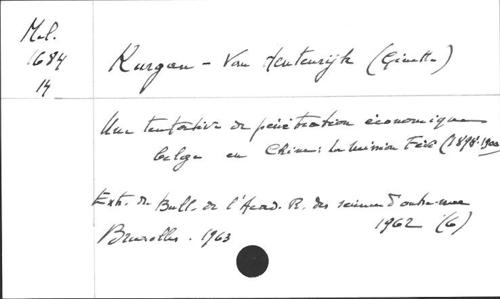 Mel.
1684
14
Kurgan - Van Hentenrijk (Ginette)
Une tentative de pénétration économique
belge en Chine: la mission Fivé (1898-1900
Extr. de Bull. de l'Acad. R. des sciences d'outre-mer
1962 (6)
Bruxelles. 1963